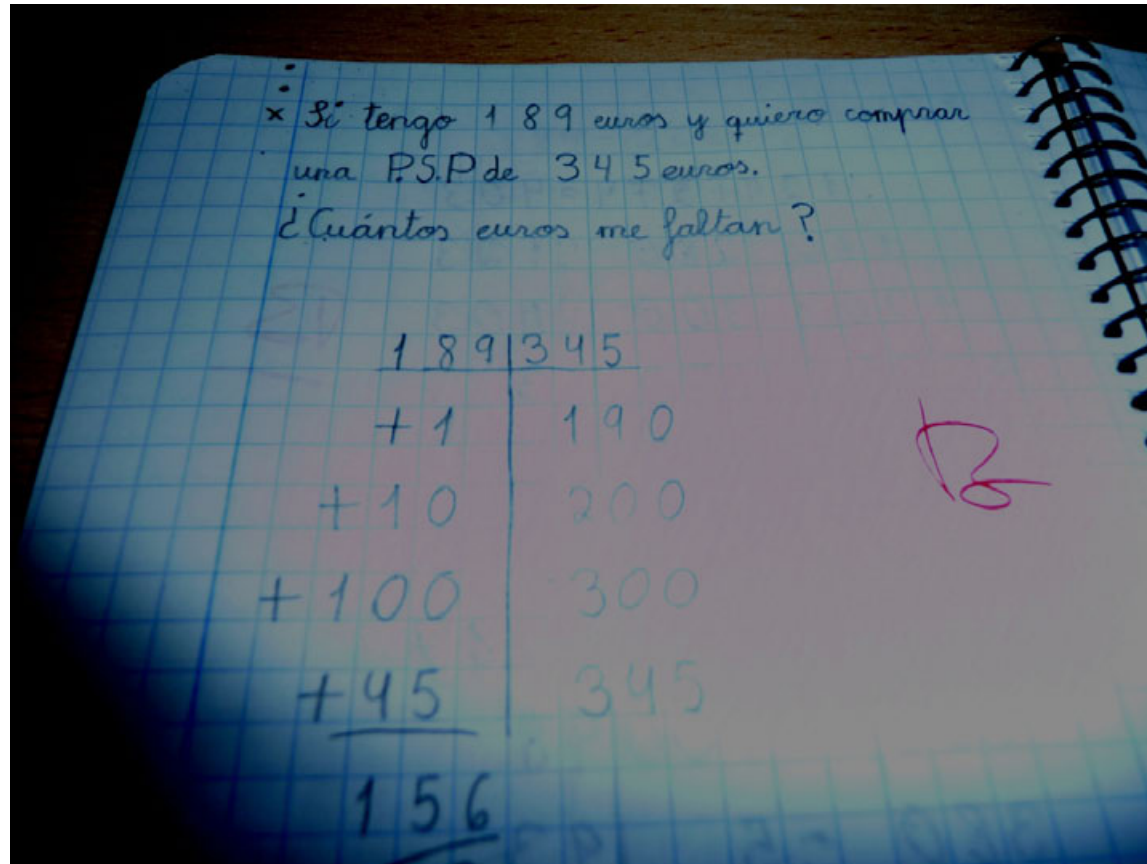 × Si tengo 189 euros y quiero comprar
una P.S.P de 345 euros.
¿Cuántos euros me faltan?
189|345
+1 190
+10 200
+100 300
+45 345
156